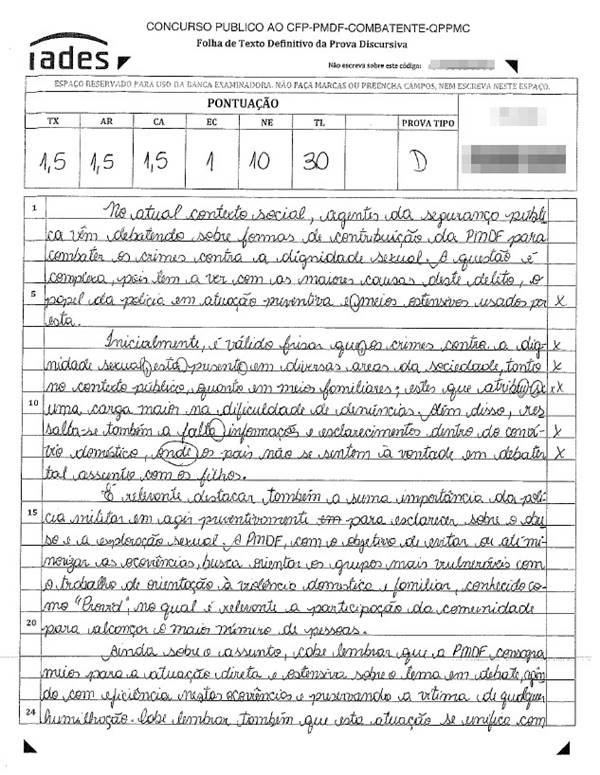 CONCURSO PUBLICO AO CFP-PMDF-COMBATENTE-QPPMC
Folha de Texto Definitivo da Prova Discursiva
iades
Não escreva sobre este código:
ESPAÇO RESERVADO PARA USO DA BANCA EXAMINADORA. NÃO FAÇA MARCAS OU PREENCHA CAMPOS, NEM ESCREVA NESTE ESPAÇO.
PONTUAÇÃO
TX AR CA EC NE TL PROVA TIPO
1,5 1,5 1,5 1 10 30 D
1 No atual contexto social, agentes da segurança públi
ca vêm debatendo sobre formas de contribuição da PMDF para
combater os crimes contra a dignidade sexual. A questão é
complexa, pois tem a ver com as maiores causas deste delito, o
5 papel da polícia em atuação preventiva e o meios ostensivos usados por x
esta.
Inicialmente, é válido frisar que os crimes contra a dig x
nidade sexual está presente em diversas areas da sociedade, tanto x
no contexto público, quanto em meios familiares; estes que atribui a xx
10 uma carga maior na dificuldade de denúncias. Além disso, res
salta-se também a falta informação e esclarecimentos dentro do conví- x
vio doméstico, onde os pais não se sentem à vontade em debater x
tal assunto com os filhos.
É relevante destacar também a suma importância da polí
15 cia militar em agir preventivamente em para esclarecer sobre o abu
so e a exploração sexual. A PMDF, com o objetivo de evitar ou até mi
norizar as ocorrências, busca orientar os grupos mais vulneráveis com
o trabalho de orientação à violência domestica e familiar, conhecido co
mo "Provid", no qual é relevante a participação da comunidade
20 para alcançar o maior número de pessoas.
Ainda sobre o assunto, cabe lembrar que a PMDF, consagra
meios para a atuação direta e ostensiva sobre o tema em debate, agin
do com eficiência nestas ocorrências e preservando a vítima de qualquer
24 humilhação. Cabe lembrar também que esta atuação se unifica com